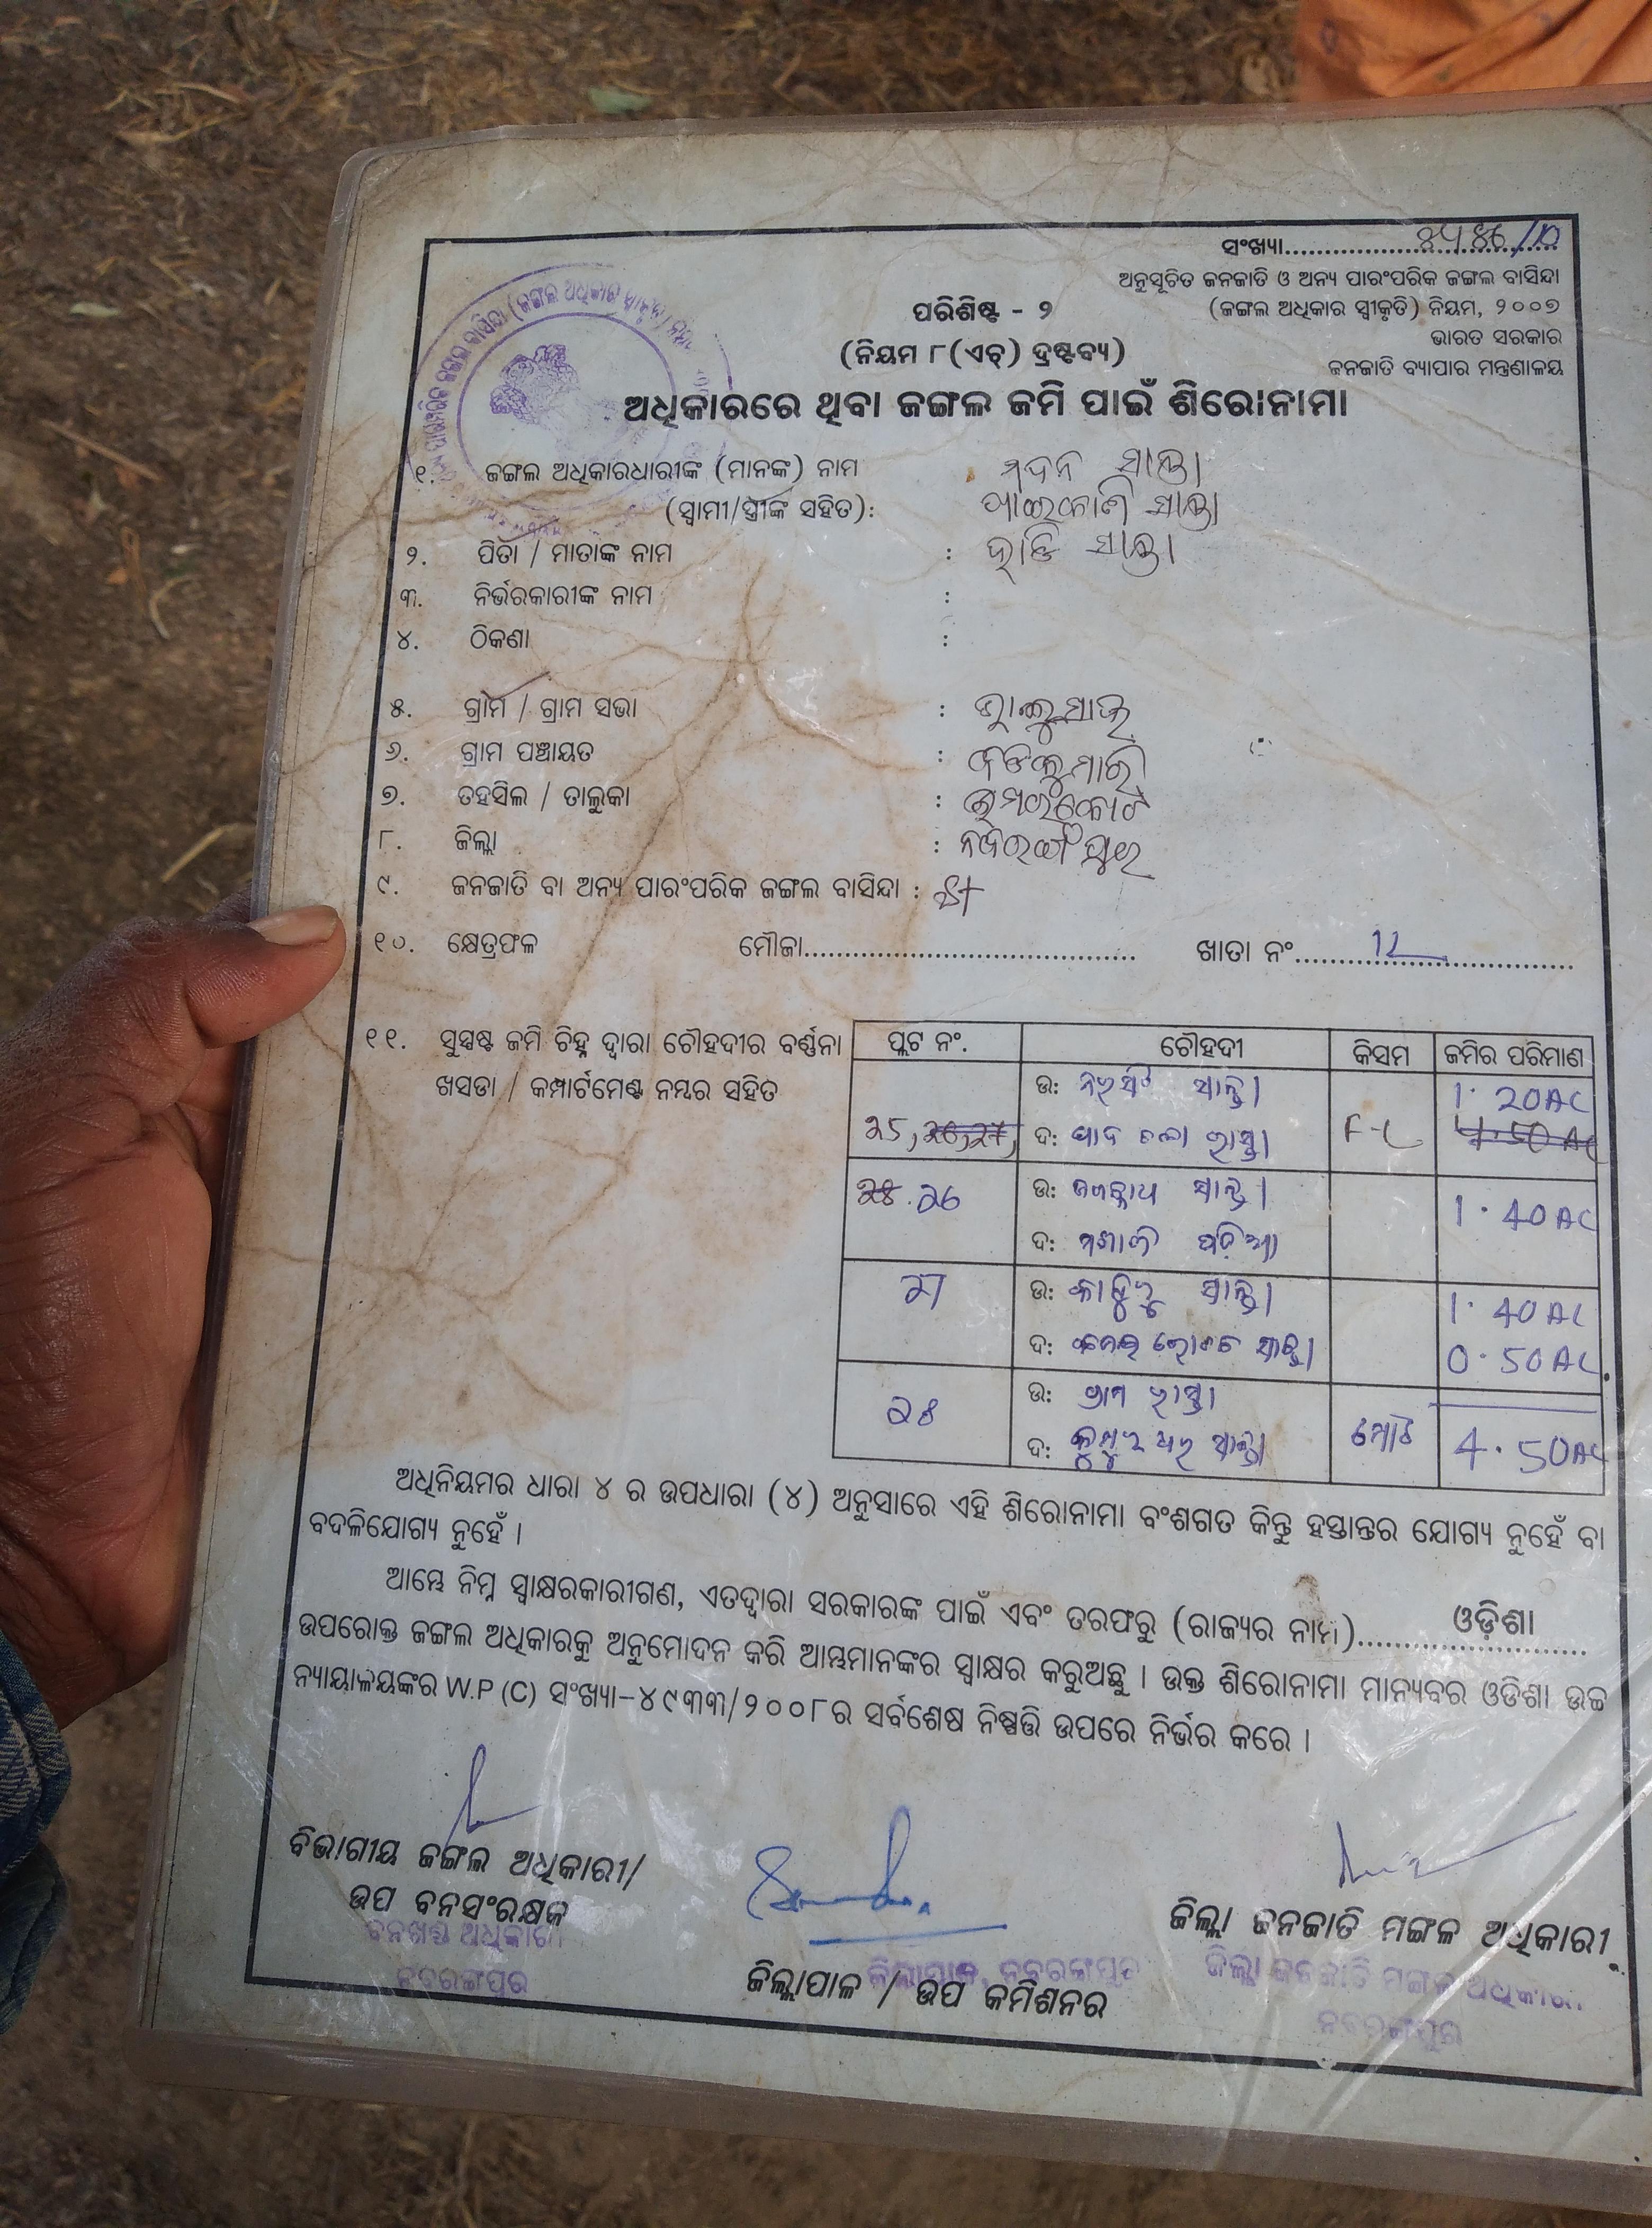 ସଂଖ୍ୟା
ଅନୁସୂଚିତ ଜନଜାତି ଓ ଅନ୍ୟ ପାରଂପରିକ ଜଙ୍ଗଲ ବାସିନ୍ଦା
(ଜଙ୍ଗଲ ଅଧିକାର ସ୍ୱୀକୃତି) ନିୟମ, ୨୦୦୭
ଭାରତ ସରକାର
ଜନଜାତି ବ୍ୟାପାର ମନ୍ତ୍ରଣାଳୟ
ପରିଶିଷ୍ଟ - ୨
(ନିୟମ ୮(ଏଚ୍) ଦ୍ରଷ୍ଟବ୍ୟ)
ଅଧିକାରରେ ଥିବା ଜଙ୍ଗଲ ଜମି ପାଇଁ ଶିରୋନାମା
୧. ଜଙ୍ଗଲ ଅଧିକାରଧାରୀଙ୍କ (ମାନଙ୍କ) ନାମ ମଦନ ସାନ୍ତା
(ସ୍ୱାମୀ/ସ୍ତ୍ରୀଙ୍କ ସହିତ): ସାନ୍ତା
୨. ପିତା / ମାତାଙ୍କ ନାମ : ସାନ୍ତା
୩. ନିର୍ଭରକାରୀଙ୍କ ନାମ :
୪. ଠିକଣା :
୫. ଗ୍ରାମ / ଗ୍ରାମ ସଭା :
୬. ଗ୍ରାମ ପଞ୍ଚାୟତ :
୭. ତହସିଲ / ତାଲୁକା : ଉମରକୋଟ
୮. ଜିଲ୍ଲା : ନବରଙ୍ଗପୁର
୯. ଜନଜାତି ବା ଅନ୍ୟ ପାରଂପରିକ ଜଙ୍ଗଲ ବାସିନ୍ଦା : ST
୧୦. କ୍ଷେତ୍ରଫଳ ମୌଜା ଖାତା ନଂ 12
୧୧. ସୁସ୍ପଷ୍ଟ ଜମି ଚିହ୍ନ ଦ୍ୱାରା ଚୌହଦୀର ବର୍ଣ୍ଣନା
ଖସଡା / କମ୍ପାର୍ଟମେଣ୍ଟ ନମ୍ବର ସହିତ
ପ୍ଲଟ ନଂ. ଚୌହଦୀ କିସମ ଜମିର ପରିମାଣ
ଉ: ସାନ୍ତା 1.20AC
ଦ: ପାଦ ଚଲା ରାସ୍ତା 4.50 AC
୨୬ ଉ: ଜଗନ୍ନାଥ ସାନ୍ତା 1.40AC
ଦ: ପଡିଆ
୨୭ ଉ: ସାନ୍ତା 1.40 AC
ଦ: ସାନ୍ତା 0.50AC
୨୫ ଉ: ଗ୍ରାମ ରାସ୍ତା ମୋଟ 4.50AC
ଦ: ସାନ୍ତା
ଅଧିନିୟମର ଧାରା ୪ ର ଉପଧାରା (୪) ଅନୁସାରେ ଏହି ଶିରୋନାମା ବଂଶଗତ କିନ୍ତୁ ହସ୍ତାନ୍ତର ଯୋଗ୍ୟ ନୁହେଁ ବା
ବଦଳିଯୋଗ୍ୟ ନୁହେଁ ।
ଆମ୍ଭେ ନିମ୍ନ ସ୍ୱାକ୍ଷରକାରୀଗଣ, ଏତଦ୍ୱାରା ସରକାରଙ୍କ ପାଇଁ ଏବଂ ତରଫରୁ (ରାଜ୍ୟର ନାମ) ଓଡ଼ିଶା
ଉପରୋକ୍ତ ଜଙ୍ଗଲ ଅଧିକାରକୁ ଅନୁମୋଦନ କରି ଆମ୍ଭମାନଙ୍କର ସ୍ୱାକ୍ଷର କରୁଅଛୁ । ଉକ୍ତ ଶିରୋନାମା ମାନ୍ୟବର ଓଡିଶା ଉଚ୍ଚ
ନ୍ୟାୟାଳୟଙ୍କର W.P (C) ସଂଖ୍ୟା-୪୯୩୩/୨୦୦୮ର ସର୍ବଶେଷ ନିଷ୍ପତ୍ତି ଉପରେ ନିର୍ଭର କରେ ।
ବିଭାଗୀୟ ଜଙ୍ଗଲ ଅଧିକାରୀ/
ଉପ ବନସଂରକ୍ଷକ
ବନଖଣ୍ଡ ଅଧିକାରୀ
ନବରଙ୍ଗପୁର
ଜିଲ୍ଲାପାଳ, ନବରଙ୍ଗପୁର
ଜିଲ୍ଲାପାଳ / ଉପ କମିଶନର
ଜିଲ୍ଲା ଜନଜାତି ମଙ୍ଗଳ ଅଧିକାରୀ
ଜିଲ୍ଲା ଜନଜାତି ମଙ୍ଗଳ ଅଧିକାରୀ
ନବରଙ୍ଗପୁର